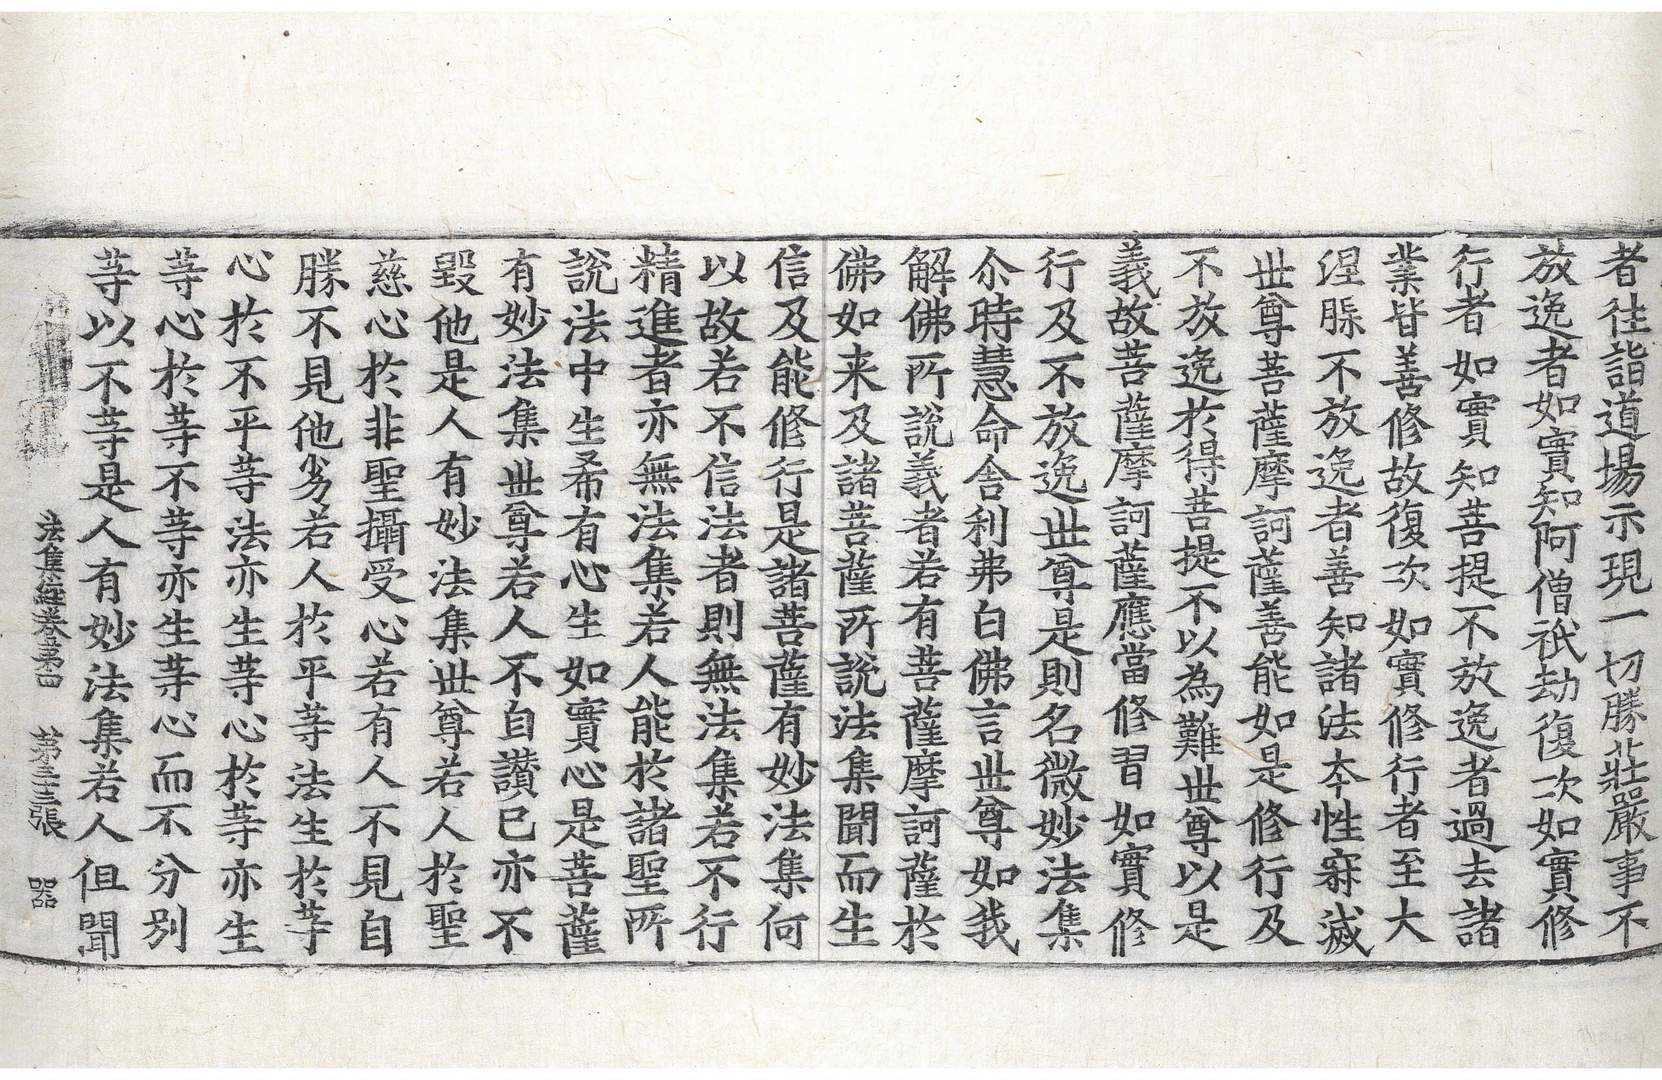 者往詣道場示現一切勝莊嚴事不
放逸者如實知阿僧祇劫復次如實修
行者如實知菩提不放逸者過去諸
業皆善修故復次如實修行者至大
涅槃不放逸者善知諸法本性寂滅
世尊菩薩摩訶薩善能如是修行及
不放逸於得菩提不以為難世尊以是
義故菩薩摩訶薩應當修習如實修
行及不放逸世尊是則名微妙法集
尒時慧命舍利弗白佛言世尊如我
解佛所說義者若有菩薩摩訶薩於
佛如来及諸菩薩所說法集聞而生
信及能修行是諸菩薩有妙法集何
以故若不信法者則無法集若不行
精進者亦無法集若人能於諸聖所
說法中生希有心生如實心是菩薩
有妙法集世尊若人不自讃已亦不
毀他是人有妙法集世尊若人於聖
慈心於非聖攝受心若有人不見自
勝不見他劣若人於平等法生於等
心於不平等法亦生等心於等亦生
等心於等不等亦生等心而不分別
等以不等是人有妙法集若人但聞
法集經卷第四 第三十三張 器